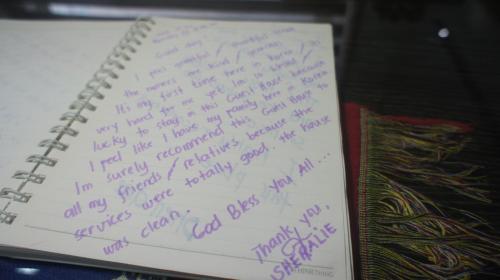 Good day,
I feel grateful / thankful
the owners are kind /
It's my first time here in Korea / it's
very hard for me yet I'm so blessed /
lucky to stay in this Guest House because
I feel like I have my family here in Korea
Im surely recommend this Guest House to
all my friends / relatives because the
services were totally good. the house
was clean..
God Bless You All ...
Thank you,
SHERALIE